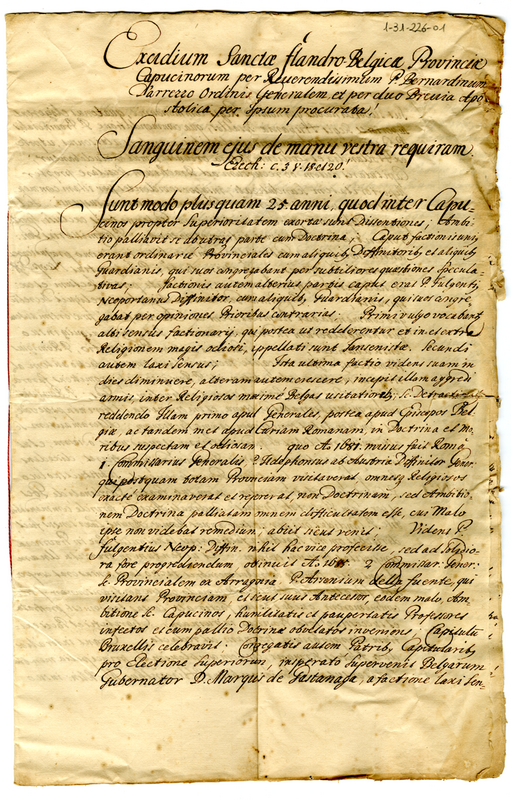 1-31-226-01
Exidium Sanctæ flandro-Belgicæ Provinciæ
Capucinorum per Reverendissimum P. Bernardinum
Ordinis Generalem, et per duo Brevia Apo
stolica per ipsum procurata!
Sanguinem ejus de manu vestra requiram
Ezech: c. 3 v. 18 et 20!
Sunt modo plusquam 25 anni, quod inter Capu-
cinos propter Superioritatem exortæ sunt Dissentiones; Ambi-
tio palliavit se ab utraq parte cum Doctrina; Caput factionis unius
erant ordinarie Provinciales cum aliquib, Diffinitorib, et aliquib,
Guardianis, qui suos angregabant per subtiliores quæstiones specula-
tivas; factionis autem alterius partis caput erat P. Fulgentius
Neoportanus Diffinitor, cum aliquib, Guardianis, qui suos angre
gabat per opiniones Prioribus contrarias. Primi vulgo vocabant
albi sensus factionarij, qui postea ut redderentur et in et extra
Religionem magis odiosi, appellati sunt Jansenistæ. Secundi
autem laxi sensus; Ista ultima factio videns suam in
dies diminuere, alteram autem crescere, incepit illam aggredi
armis, inter Religiosos maxime Belgas usitatiorib,
reddendo illam primo apud Generales, postea apud Episcopos Bel
giæ, ac tandem apud Curiam Romanam, in Doctrina et Mo-
ribus suspectam et odiosam. quo Ao 1681. missus fuit Roma
1. Commissarius Generalis P. Ildephonsus ab Austria Diffinitor Gener.
qui postquam totam Provinciam visitaverat, omnesq Religiosos
exacte examinaverat et repererat, non Doctrinam, sed Ambitio-
nem Doctrina palliatam omnem difficultatem esse, cui Malo
ipse non videbat remedium, abiit sicut venit; Videns P.
Fulgentius Neop. Diffin. nihil hac vice profecisse, sed ad
ra fore progrediendum, obtinuit Ao 2. Commissar. Gener:
sc. Provincialem ex Arragonia P. della fuente, qui
visitans Provinciam, et sicut suus Antecessor, eodem malo, Am-
bitione sc. Capucinos, humilitatis et paupertatis Professores
infectos et cum pallio Doctrinæ obvelatos inveniens, Capitulū
Bruxellis celebravit. Congregatis autem Patrib, Capitularib,
pro Electione Superiorum, insperato supervenit Belgarum
Gubernator D. Marquis de Gastanaga, a factione laxi sen-